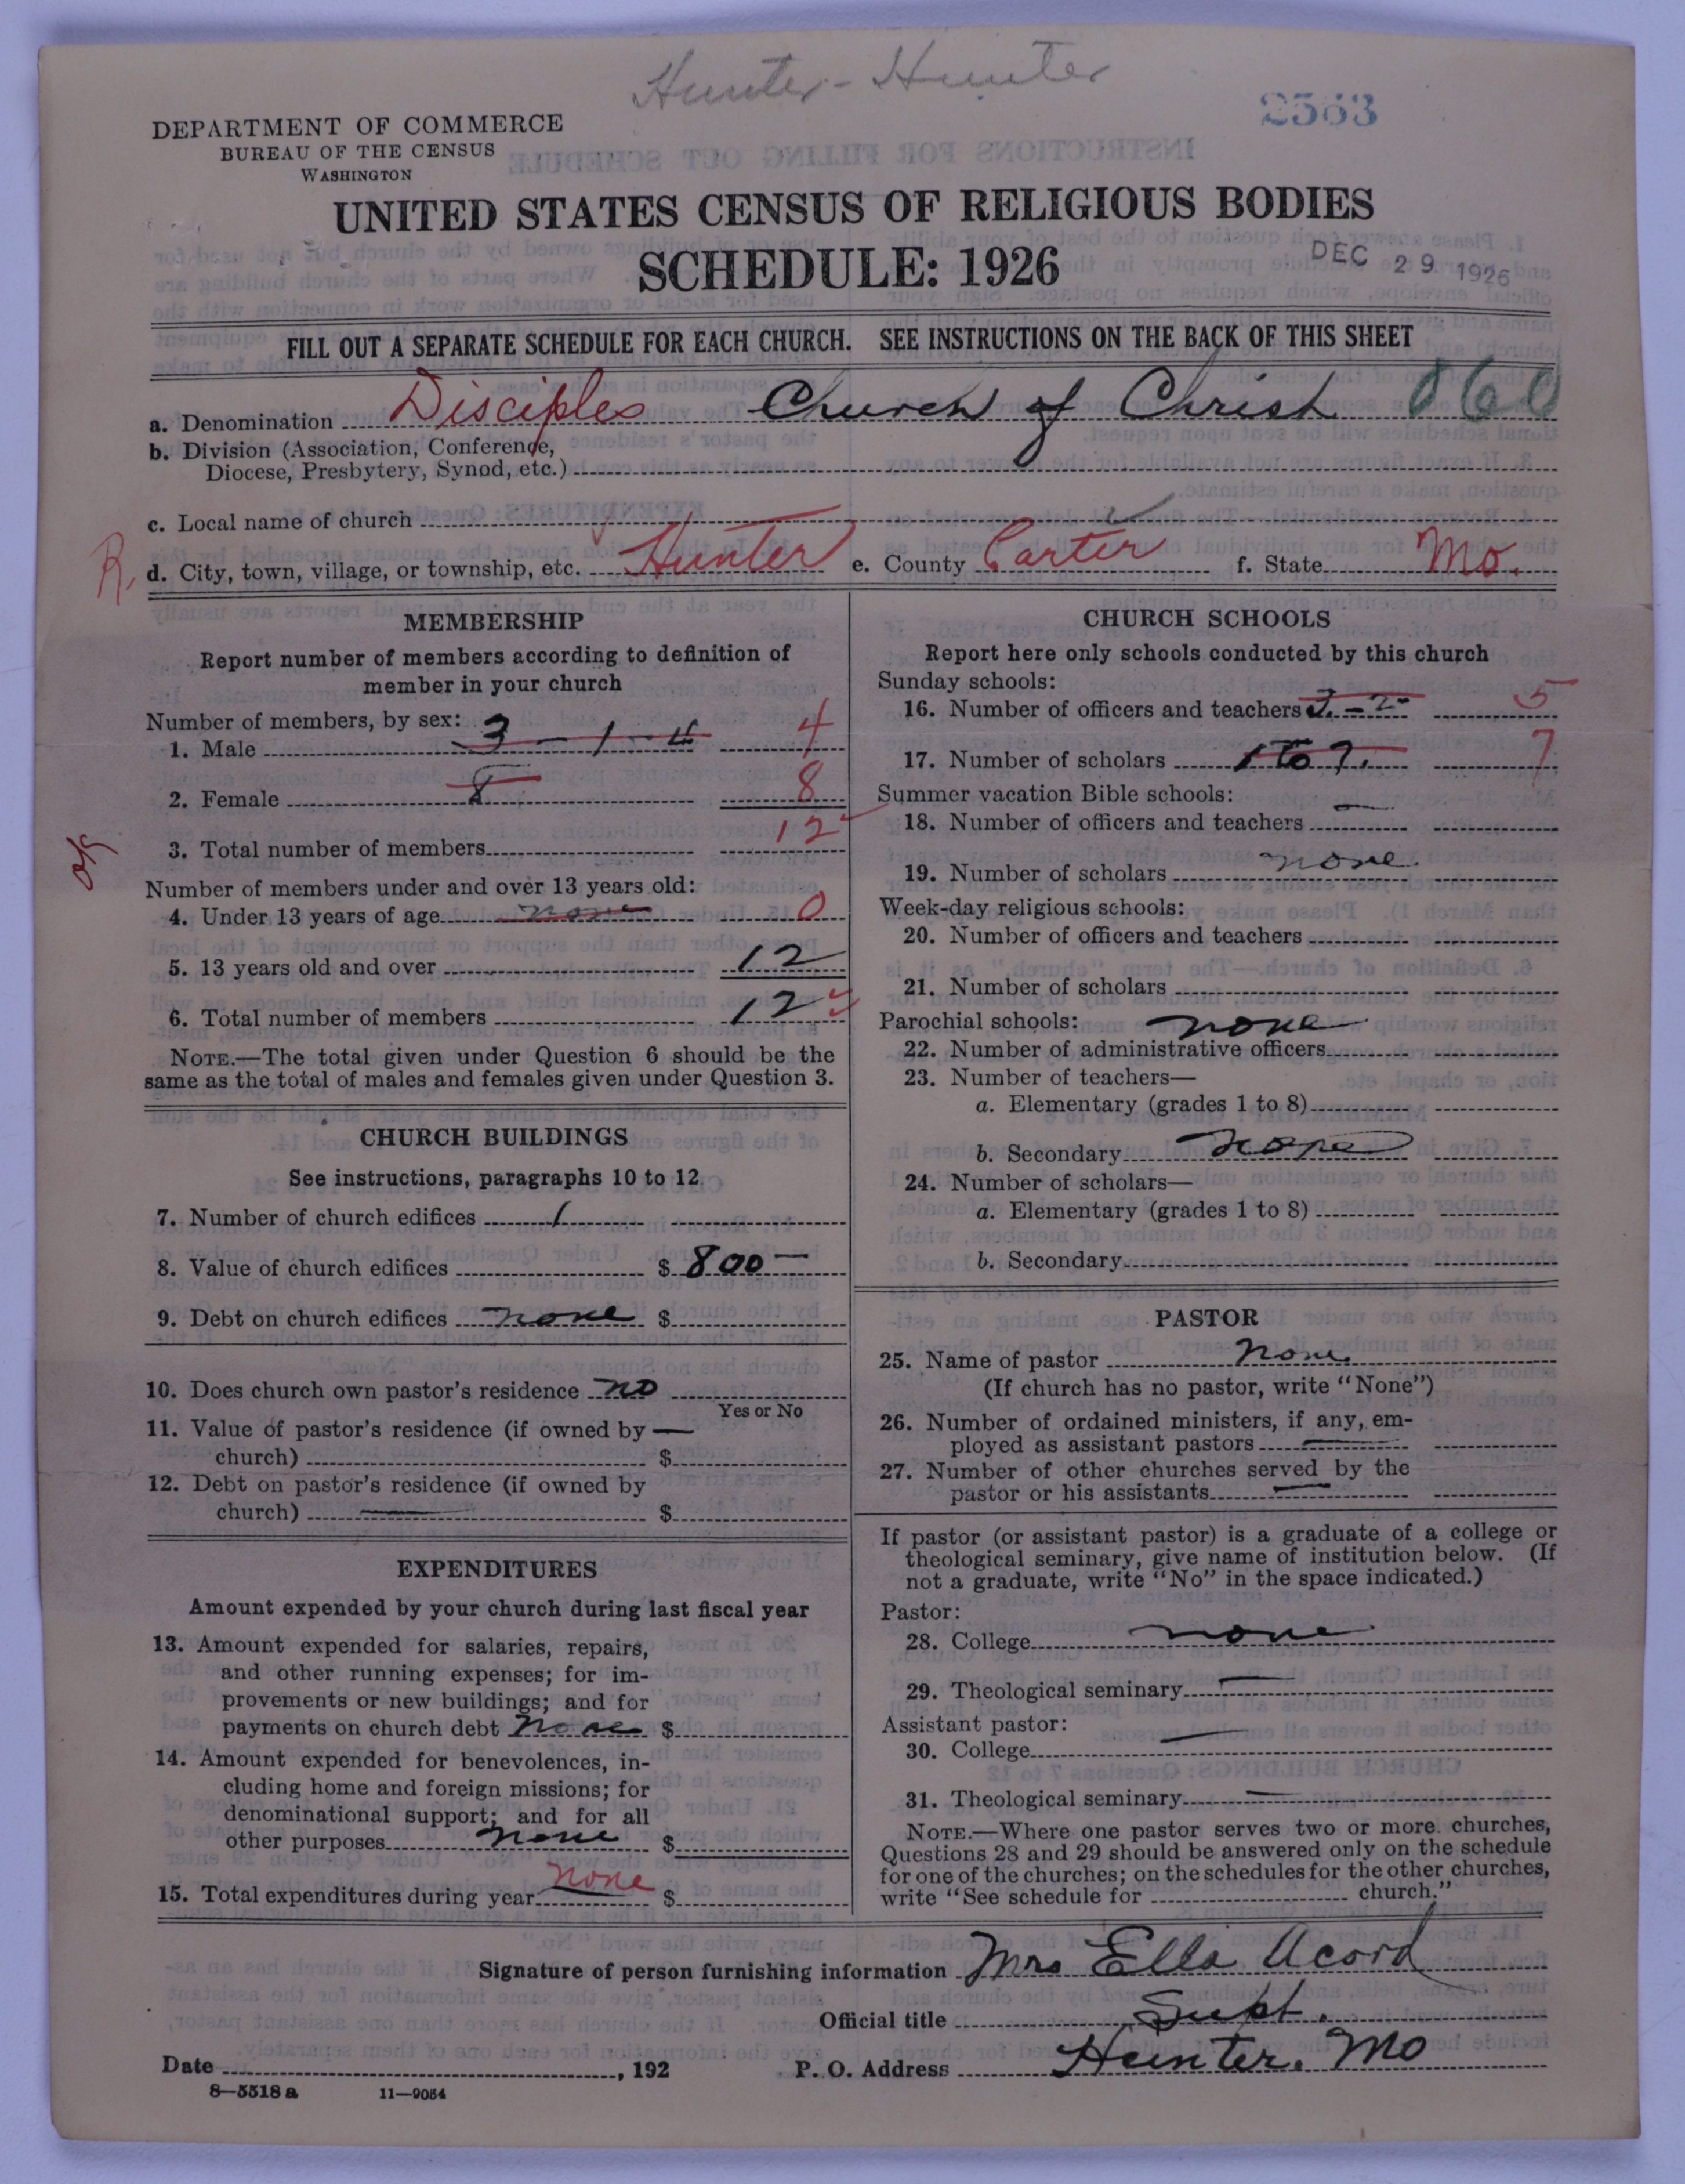 Hunter - Hunter
2563
DEPARTMENT OF COMMERCE
BUREAU OF THE CENSUS
WASHINGTON
UNITED STATES CENSUS OF RELIGIOUS BODIES
SCHEDULE: 1926
DEC 29 1926
FILL OUT A SEPARATE SCHEDULE FOR EACH CHURCH. SEE INSTRUCTIONS ON THE BACK OF THIS SHEET
a. Denomination Disciples Church of Christ 060
b. Division (Association, Conference,
Diocese, Presbytery, Synod, etc.)
c. Local name of church
R. d. City, town, village, or township, etc. Hunter e. County Carter f. State Mo.
MEMBERSHIP
Report number of members according to definition of
member in your church
Number of members, by sex:
1. Male 3 - 1 - 4 4
2. Female 8 8
3. Total number of members 12
Number of members under and over 13 years old:
4. Under 13 years of age none 0
5. 13 years old and over 12
6. Total number of members 12
NOTE.—The total given under Question 6 should be the
same as the total of males and females given under Question 3.
CHURCH BUILDINGS
See instructions, paragraphs 10 to 12
7. Number of church edifices 1
8. Value of church edifices $ 800 —
9. Debt on church edifices none $
10. Does church own pastor's residence no
Yes or No
11. Value of pastor's residence (if owned by —
church) $
12. Debt on pastor's residence (if owned by
church) — $
EXPENDITURES
Amount expended by your church during last fiscal year
13. Amount expended for salaries, repairs,
and other running expenses; for im-
provements or new buildings; and for
payments on church debt none $
14. Amount expended for benevolences, in-
cluding home and foreign missions; for
denominational support; and for all
other purposes none $
15. Total expenditures during year none $
CHURCH SCHOOLS
Report here only schools conducted by this church
Sunday schools:
16. Number of officers and teachers 3. - 2 - 5
17. Number of scholars 1 to 7. 7
Summer vacation Bible schools:
18. Number of officers and teachers —
19. Number of scholars none.
Week-day religious schools:
20. Number of officers and teachers
21. Number of scholars
Parochial schools: none
22. Number of administrative officers
23. Number of teachers—
a. Elementary (grades 1 to 8)
b. Secondary none
24. Number of scholars—
a. Elementary (grades 1 to 8)
b. Secondary
PASTOR
25. Name of pastor none.
(If church has no pastor, write "None")
26. Number of ordained ministers, if any, em-
ployed as assistant pastors —
27. Number of other churches served by the
pastor or his assistants —
If pastor (or assistant pastor) is a graduate of a college or
theological seminary, give name of institution below. (If
not a graduate, write "No" in the space indicated.)
Pastor:
28. College none
29. Theological seminary —
Assistant pastor:
30. College —
31. Theological seminary —
NOTE.—Where one pastor serves two or more churches,
Questions 28 and 29 should be answered only on the schedule
for one of the churches; on the schedules for the other churches,
write "See schedule for church."
Signature of person furnishing information Mrs Ella Acord
Official title Supt.
Date , 192 P. O. Address Hunter. Mo
8—5518 a 11—9054